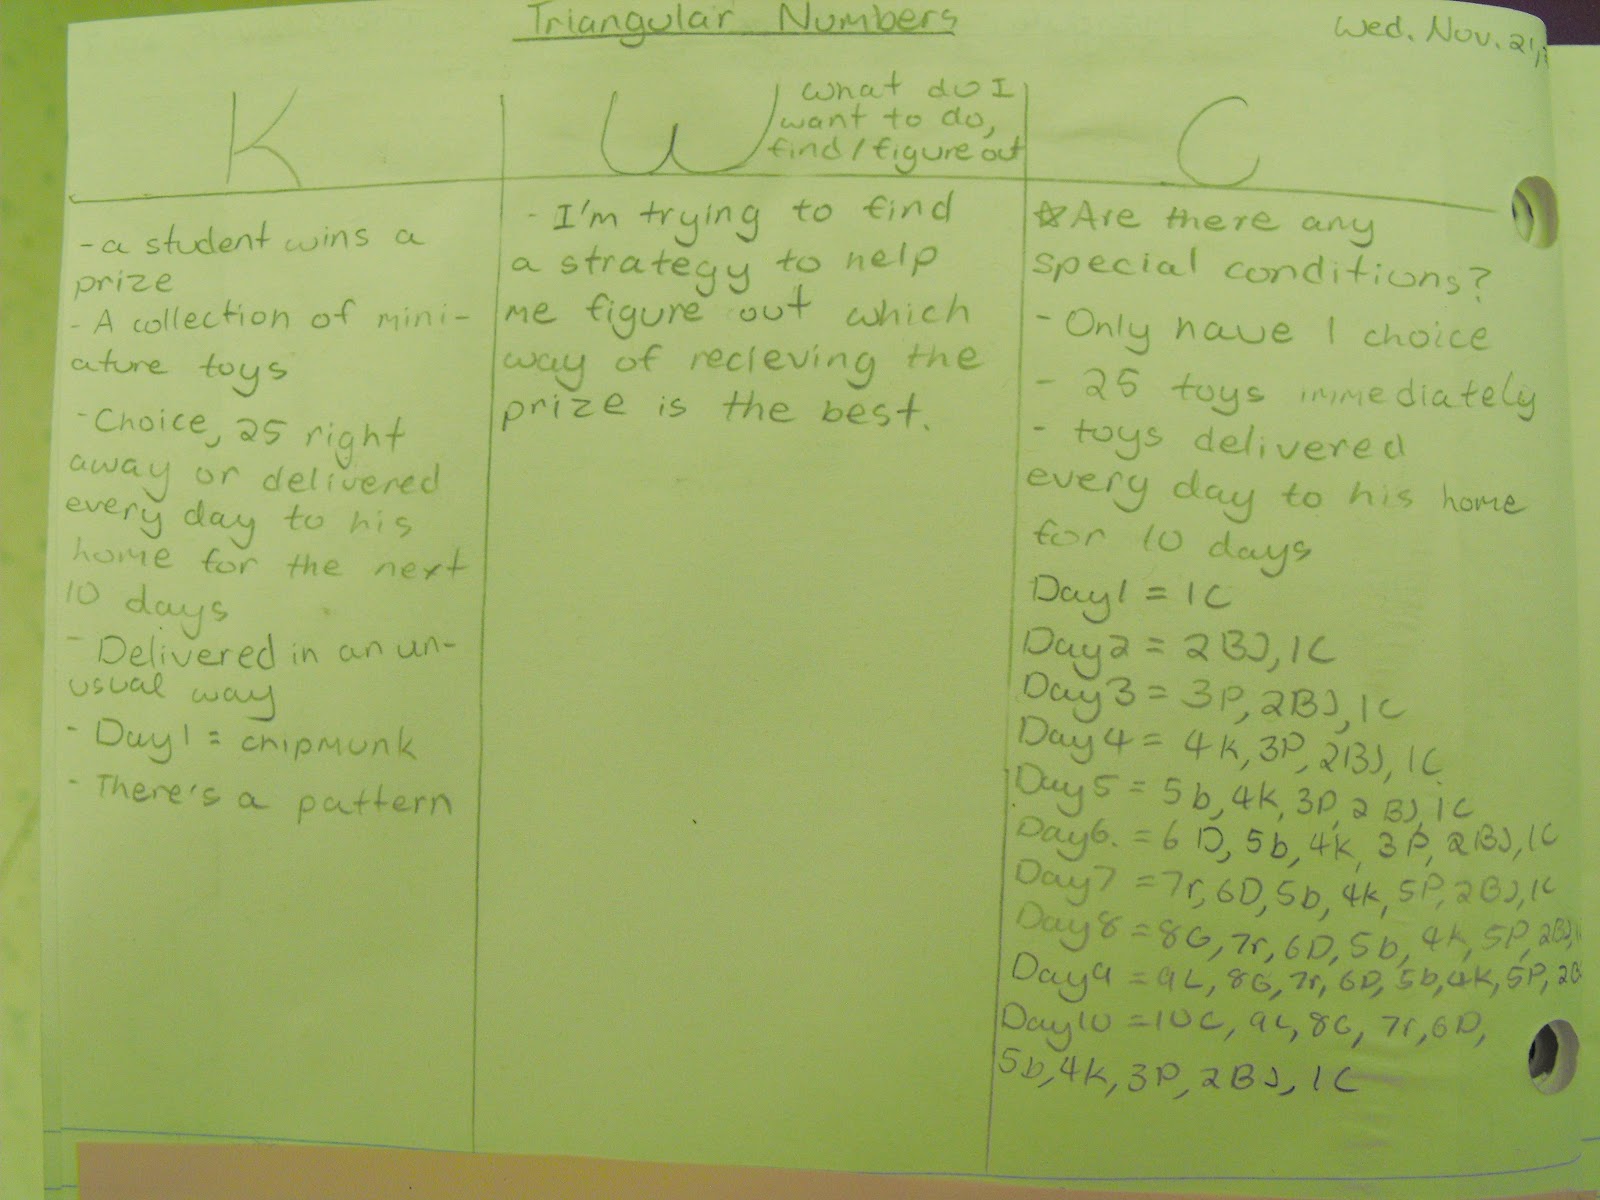 Triangular Numbers
Wed. Nov. 21,
K
W
what do I
want to do,
find/figure out
C
- a student wins a
prize
- A collection of mini-
ature toys
- Choice, 25 right
away or delivered
every day to his
home for the next
10 days
- Delivered in an un-
usual way
- Day1 = chipmunk
- There's a pattern
- I'm trying to find
a strategy to help
me figure out which
way of recieving the
prize is the best.
☆Are there any
special conditions?
- Only have 1 choice
- 25 toys immediately
- toys delivered
every day to his home
for 10 days
Day1 = 1C
Day2 = 2BJ, 1C
Day3 = 3P, 2BJ, 1C
Day4 = 4K, 3P, 2BJ, 1C
Day5 = 5b, 4K, 3P, 2BJ, 1C
Day6. = 6D, 5b, 4K, 3P, 2BJ, 1C
Day7 = 7r, 6D, 5b, 4K, 5P, 2BJ, 1C
Day8 = 8G, 7r, 6D, 5b, 4K, 5P, 2BJ, 1
Day9 = 9L, 8G, 7r, 6D, 5b, 4K, 5P, 2B
Day10 = 10C, 9L, 8G, 7r, 6D,
5b, 4K, 3P, 2BJ, 1C